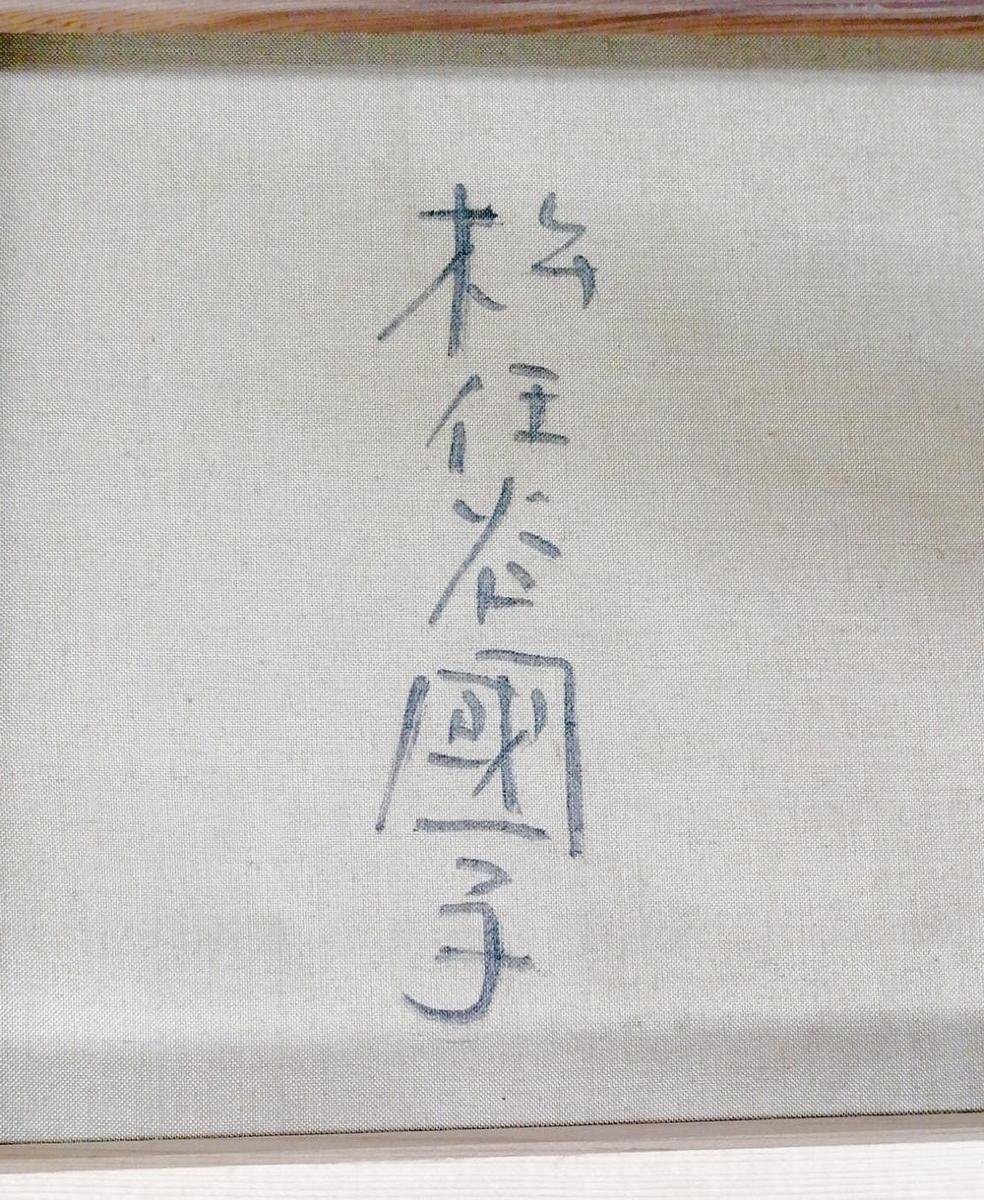 松任谷國子